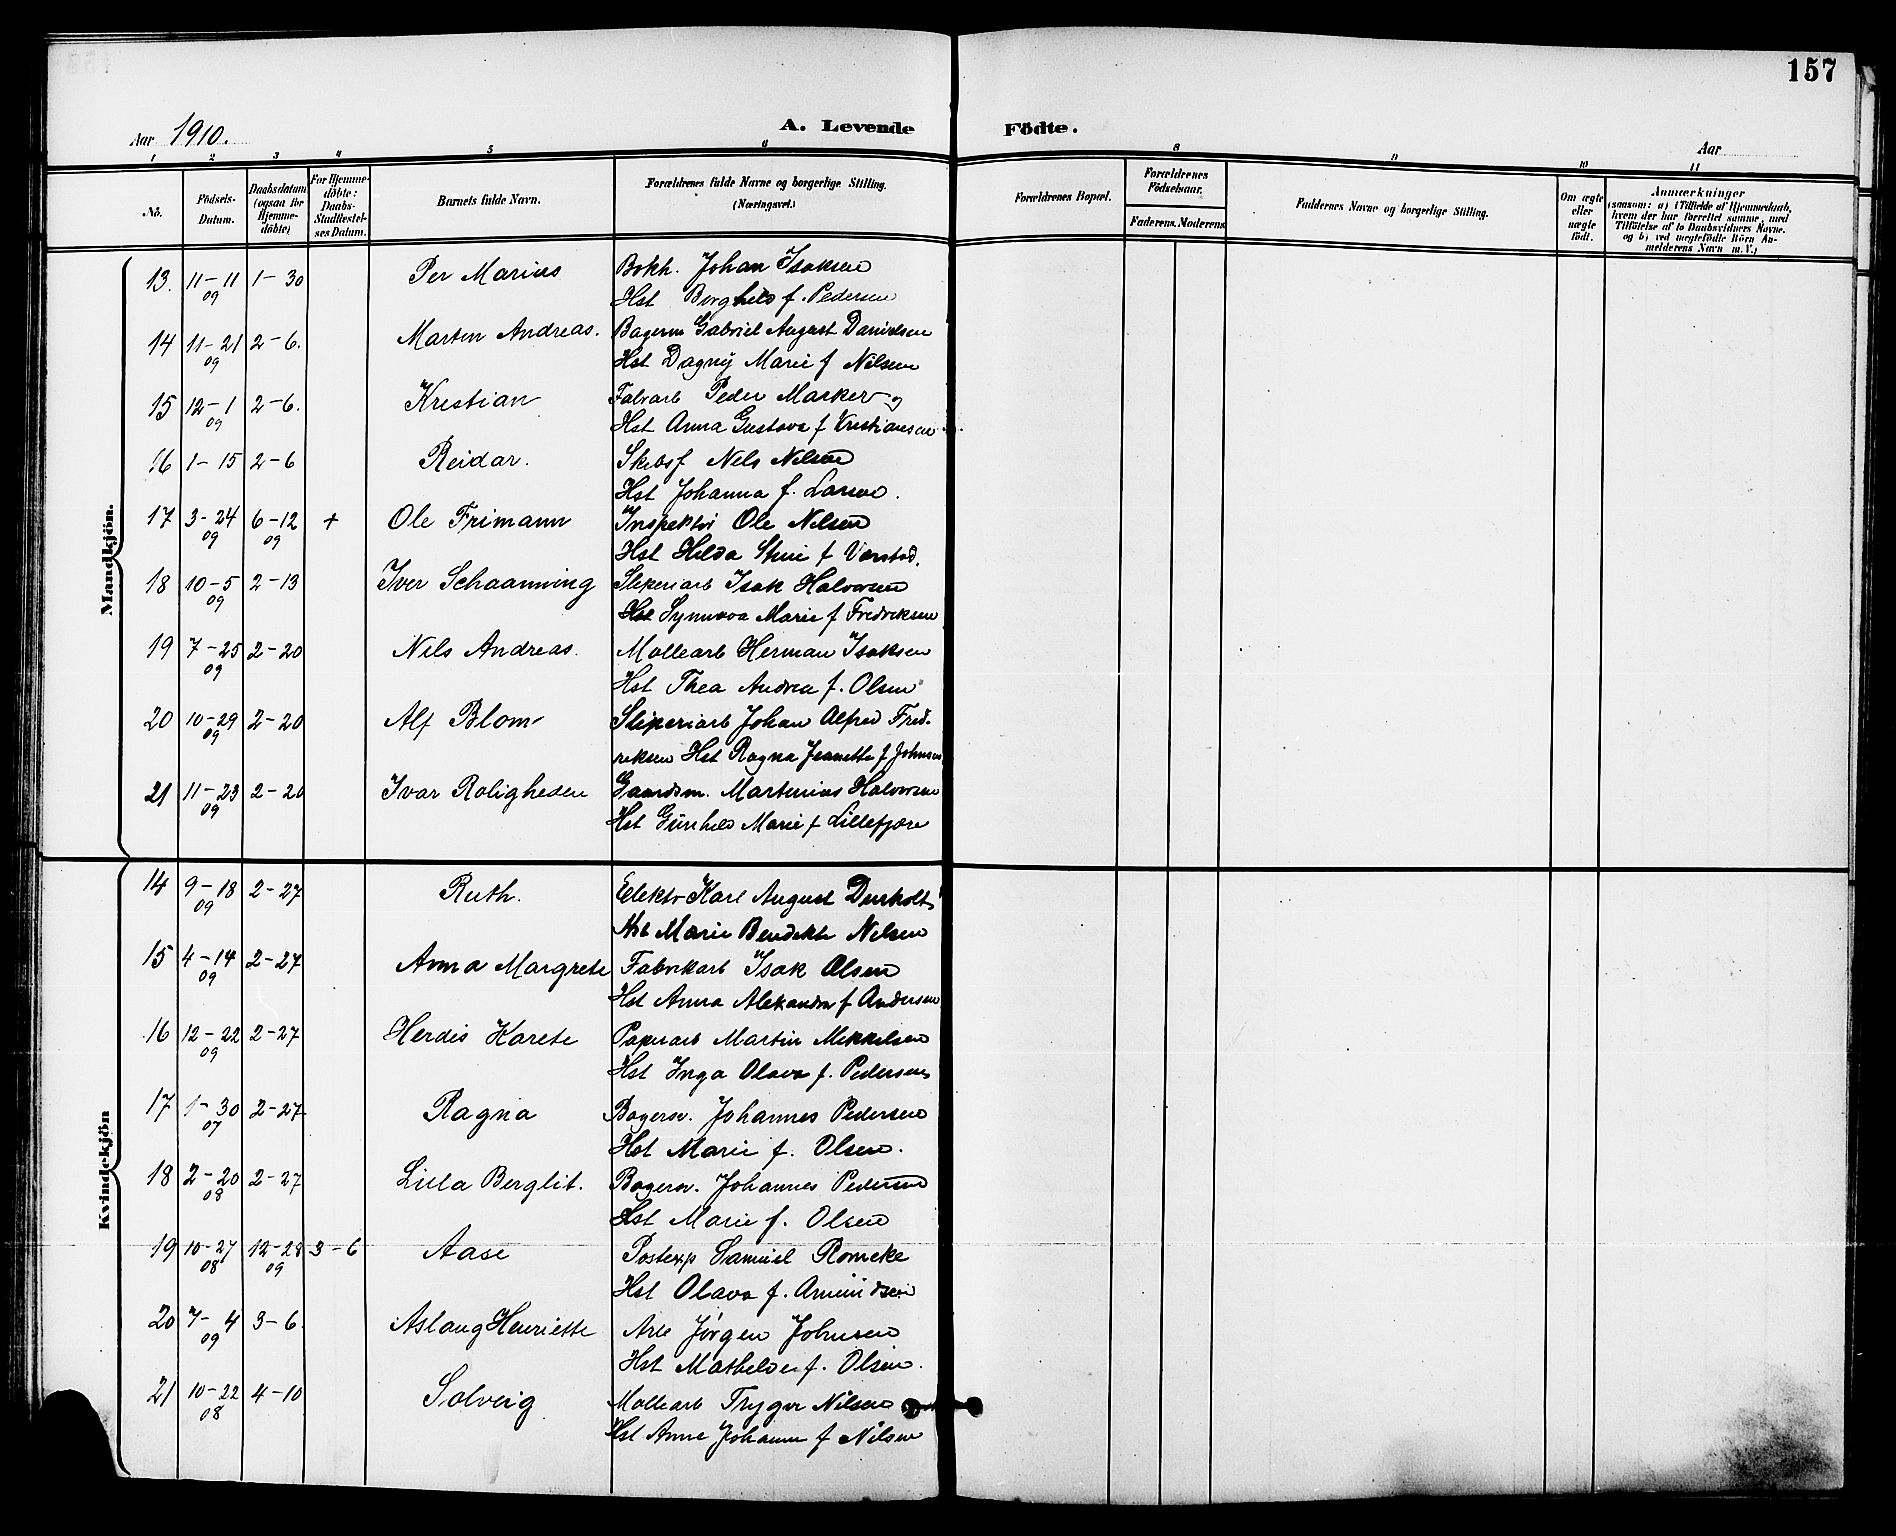 157
Aar 1910.
A. Levende Födte.
Aar
1 2 3 4 5 6 8 9 10 11
No.
Födsels-Datum.
Daabsdatum (ogsaa for Hjemme-döbte)
For Hjemme-döbte: Daabs-Stadfæstel-ses Datum.
Barnets fulde Navn.
Forældrenes fulde Navne og borgerlige Stilling. (Næringsvei.)
Forældrenes Bopæl.
Forældrenes Födselsaar.
Faderens. Moderens.
Faddernes Navne og borgerlige Stilling.
Om ægte eller uægte födt.
Anmærkninger
(saasom: a) i Tilfælde af Hjemmedaab, hvem der har forrettet samme, med Tilföielse af to Daabsvidners Navne. og b) ved uægtefödte Börn An-melderens Navn m. V.)
Mandkjön.
13. 11-11 09 1-30 Per Marius Bokh. Johan Isaksen
Hst Borghild f. Pedersen
14 11-21 09 2-6. Marten Andreas. Bagerm Gabriel August Danielsen
Hst Dagny Marie f Nilsen
15 12-1 09 2-6. Kristian Fabrarb Peder Marker og
Hst Anna Gustava f Kristiansen
16 1-15 2-6 Reidar. Skibsf Nels Nelsen
Hst Johanna f. Larsen.
17 3-24 09 6-12 09 + Ole Frimann Inspektør Ole Nilsen
Hst Hilda f
18 10-5 09 2-13 Iver Schaanning Sliperiarb Isak Halvorsen
Hst Synnøva Marie f Fredriksen
19 7-25 09 2-20 Nils Andreas. Møllearb Herman Isaksen
Hst Thea Andrea f. Olsen
20 10-29 09 2-20 Alf Blom Sliperiarb Johan Alfred Fred-
riksen Hst Ragna Jeanette f Johnsen
21 11-23 09 2-20 Ivar Roligheden Gaardsm. Martinius Halvorsen
Hst Gunhild Marie f Lillefjære
Kvindekjön
14 9-18 09 2-27 Ruth. Elektr Karl August
Hst Marie Nelsen
15 4-14 09 2-27 Anna Margrete Fabrikarb Isak Olsen
Hst Anna Alexandra f Andersen
16 12-22 09 2-27 Herdis Karete Papirarb Martin Mikkelsen
Hst Inga Olava f. Pedersen
17 1-30 07 2-27 Ragna Bagersv. Johannes Pedersen
Hst Marie f. Olsen.
18 2-20 08 2-27 Lilla Berglit. Bagersv. Johannes Pedersen
Hst Marie f. Olsen
19 10-27 08 12-28 09 3-6 Aase Postexp Samuel Romcke
Hst Olava f. Amundsen
20 7-4 09 3-6. Aslaug Henriette Arb Jørgen Johnsen
Hst Mathilde f. Olsen.
21 10-22 08 4-10 Solveig Møllearb Trygve Nilsen
Hst Anne Johanne f Nilsen